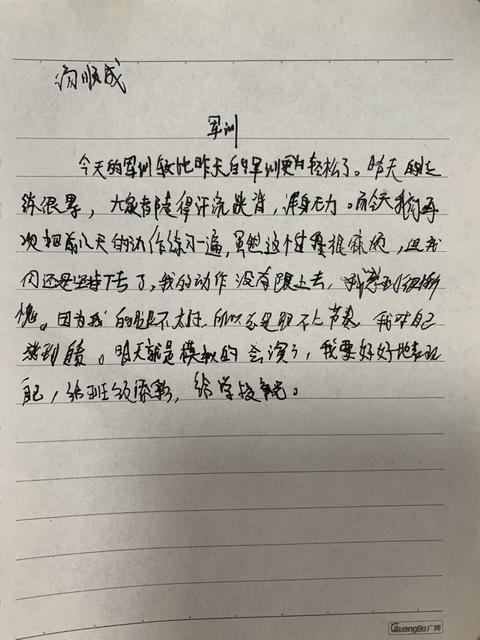 顺成
军训
今天的军训较比昨天的军训更为轻松了。昨天的走
练很累，大家都走得汗流浃背，浑身无力。而今天我们再
次把前几天的动作练习一遍，虽然这个过程很麻烦，但我
们还是坚持下去了，我的动作没有跟上去，我感到很惭
愧。因为我的腿不太好 所以总是跟不上节奏 我对自己
感到自责。明天就是模拟的会演了，我要好好地表现
自己，给班级添彩，给学校争光。
GuangBo广博